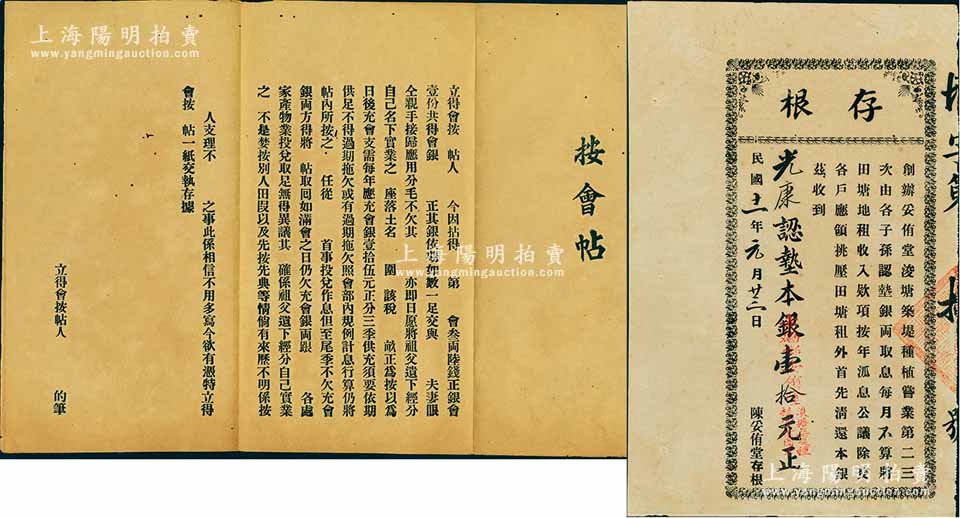 上海陽明拍賣
www.yangmingauction.com
按會帖
立得會按 帖人 今因拈得 第 會叁両陸錢正銀會
壹份共得會銀 正其銀依 數一足交與 夫妻眼
仝親手接歸應用分毛不欠其 亦即日愿將祖父遺下經分
自己名下實業之 座落土名 圍 該税 畝正為按以為
日後充會支需每年應充會銀壹拾伍元正分三季供充須要依期
供足不得過期拖欠或有過期拖欠照會部內規例計息行算仍將
帖內所按之 任從 首事投兌作息但至尾季不欠充會
銀両方得將 帖取囘如滿會之日仍欠充會銀両跟 各處
家產物業投兌取足無得異議其 確係祖父遺下經分自己實業
之 不是禁按別人田叚以及先按先典等情倘有來歷不明係按
人支理不 之事此係相信不用多寫今欲有憑特立得
會按 帖一紙交執存據
立得會按帖人 的筆
存根
創辦妥侑堂浚塘築堤種植嘗業第二三
次由各子孫認墊銀両取息每月不算將
田塘地租收入欵項按年派息公議除支
各戶應領挑壓田塘租外首先清還本銀
茲收到
光康認墊本銀壹拾元正
民國十一年元月廿二日
陳妥侑堂存根
字第
號
上海陽明拍賣
www.yangmingauction.com
上海陽明拍賣
www.yangmingauction.com